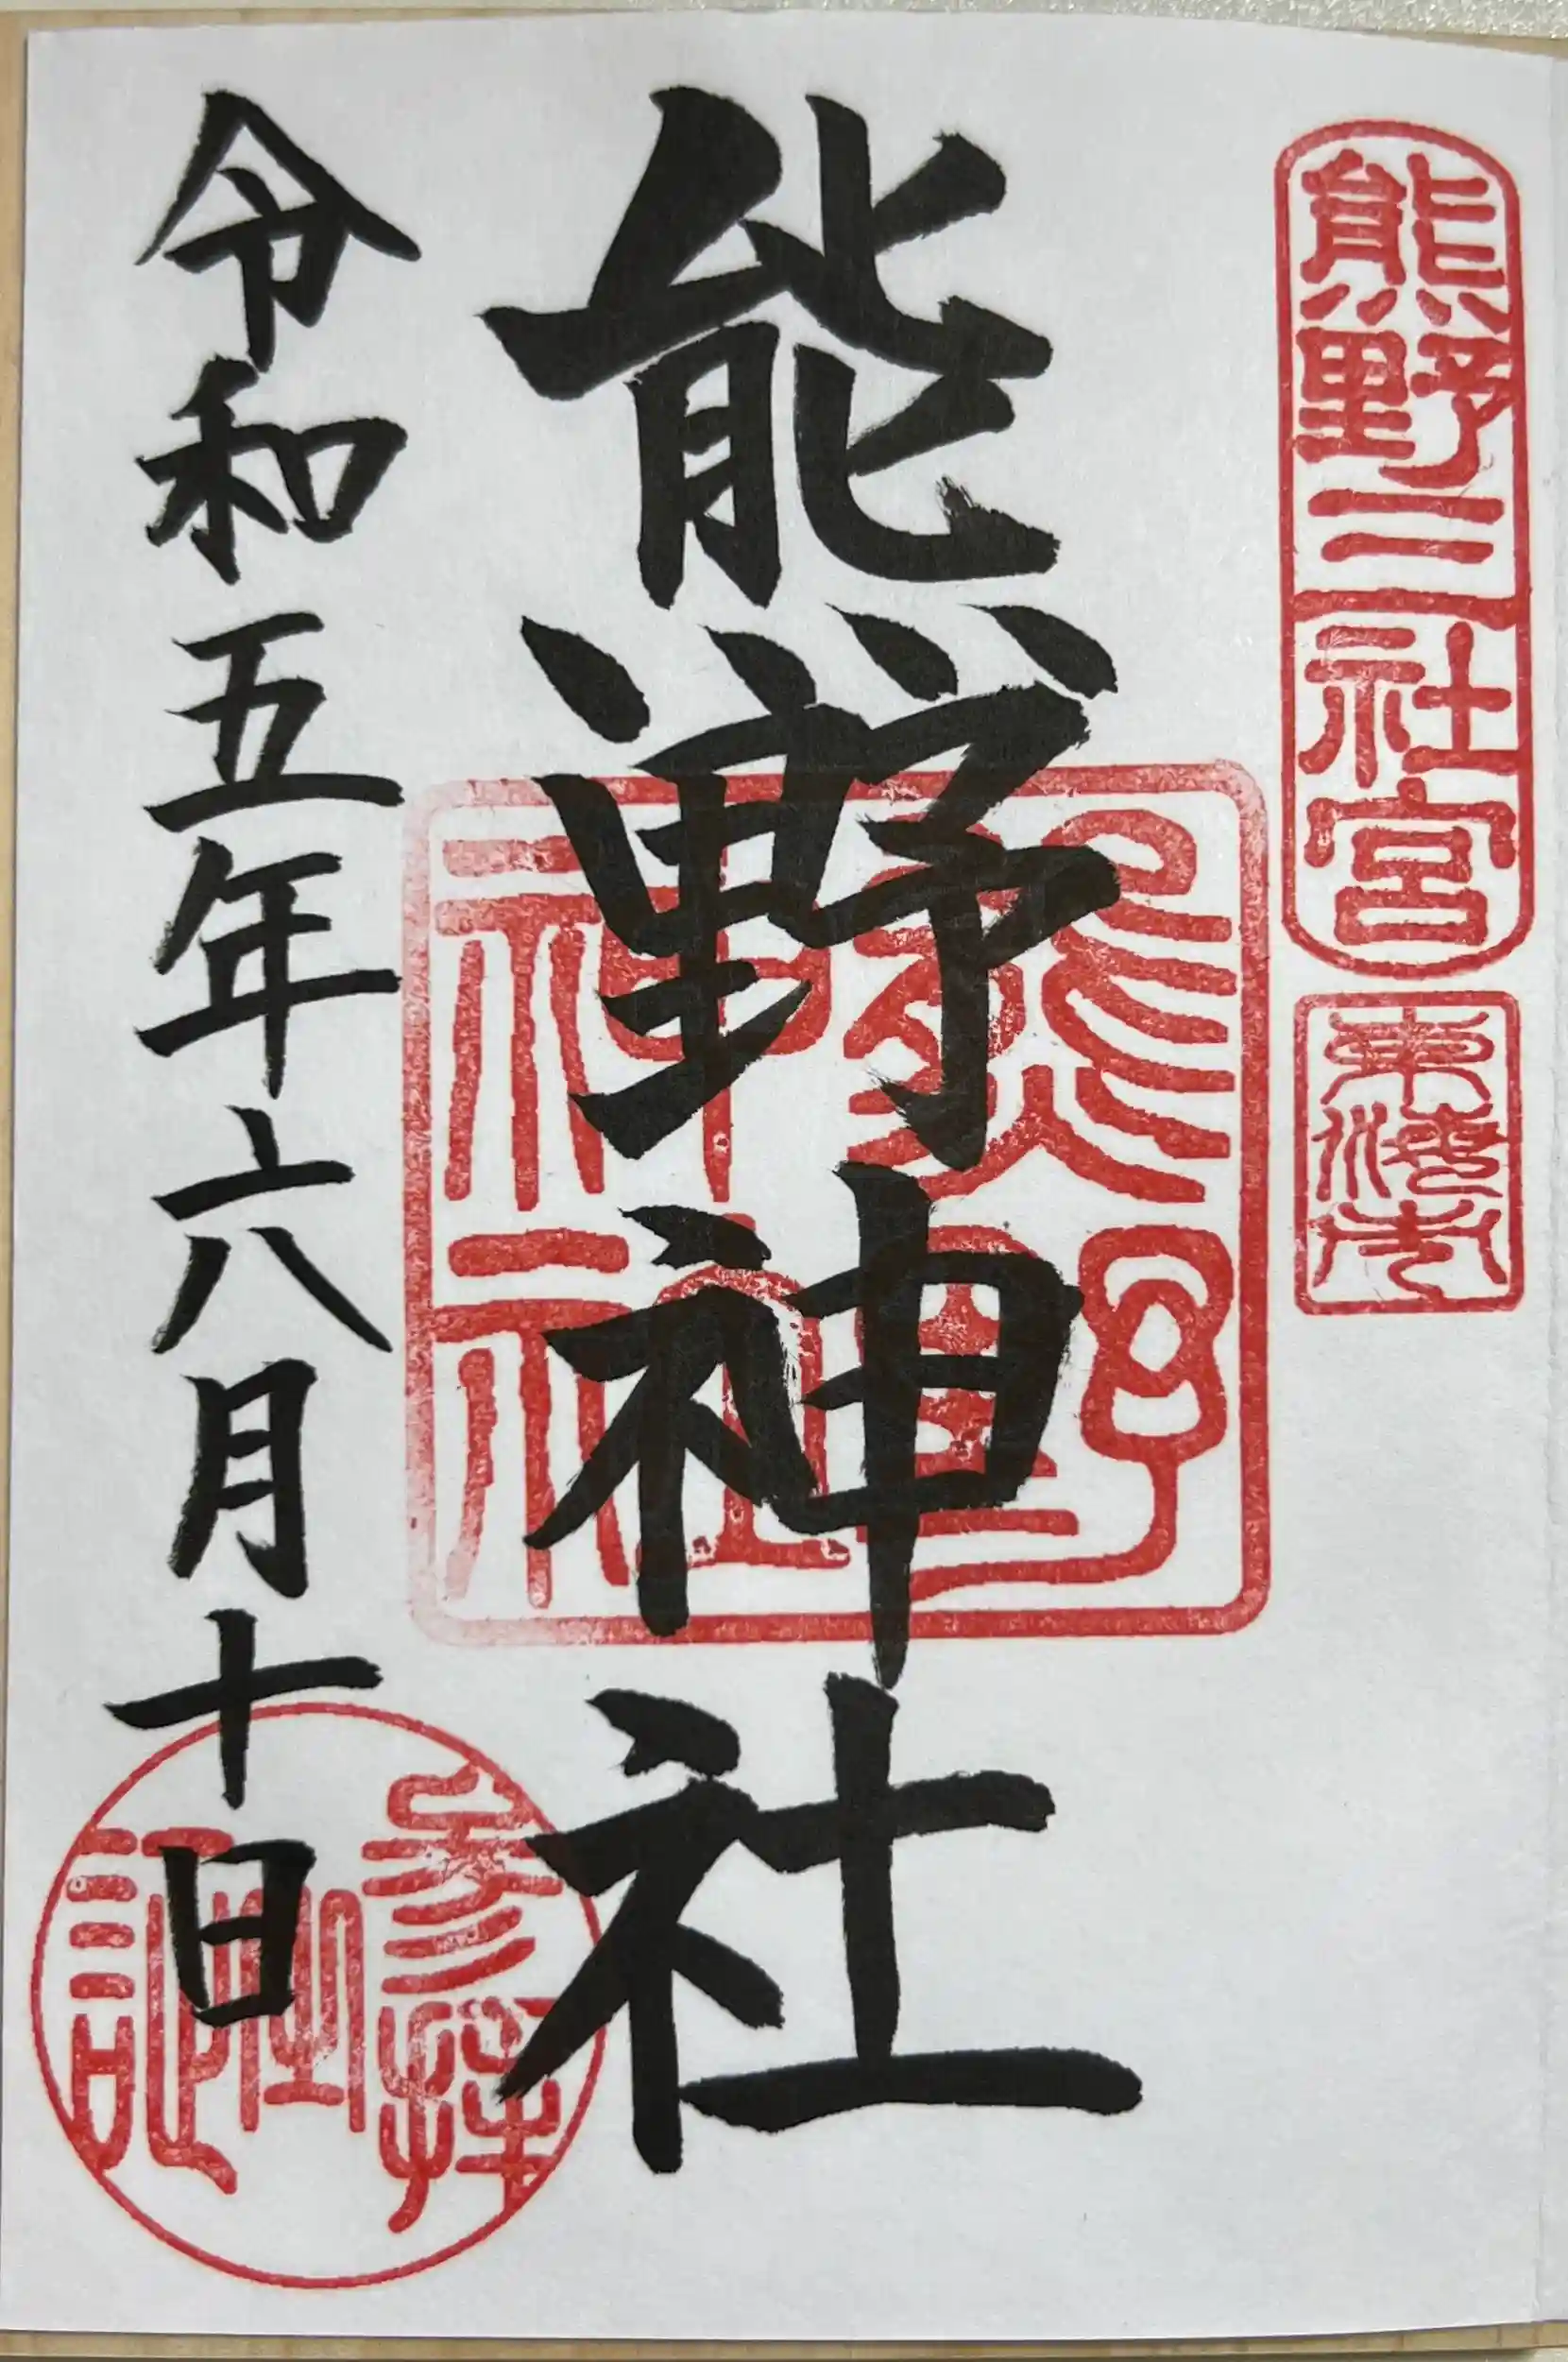 熊野三社宮
東海市
熊野神社
熊野神社
令和五年六月十日
参拝
記